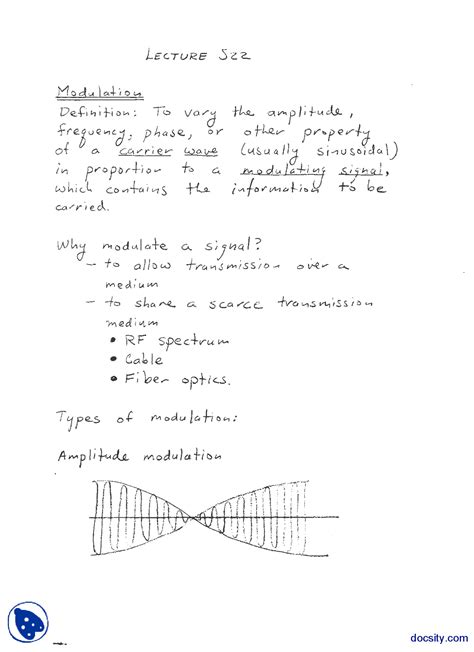 LECTURE S22
Modulation
Definition: To vary the amplitude,
frequency, phase, or other property
of a carrier wave (usually sinusoidal)
in proportion to a modulating signal,
which contains the information to be
carried.
Why modulate a signal?
– to allow transmission over a
medium
– to share a scarce transmission
medium
• RF spectrum
• Cable
• Fiber optics.
Types of modulation:
Amplitude modulation
docsity.com